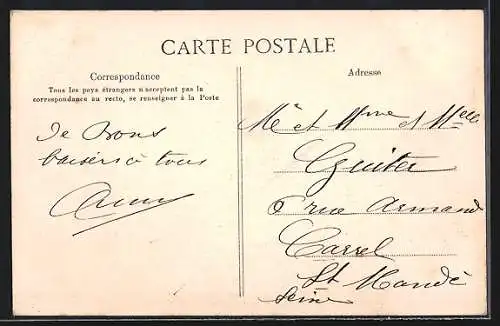 CARTE POSTALE
Correspondance
Tous les pays étrangers n'acceptent pas la
correspondance au recto, se renseigner à la Poste
De Bons
baisers à tous
Adresse
Mr et Mme et Melle
6 rue Armand
Carrel
St Mandé
Seine